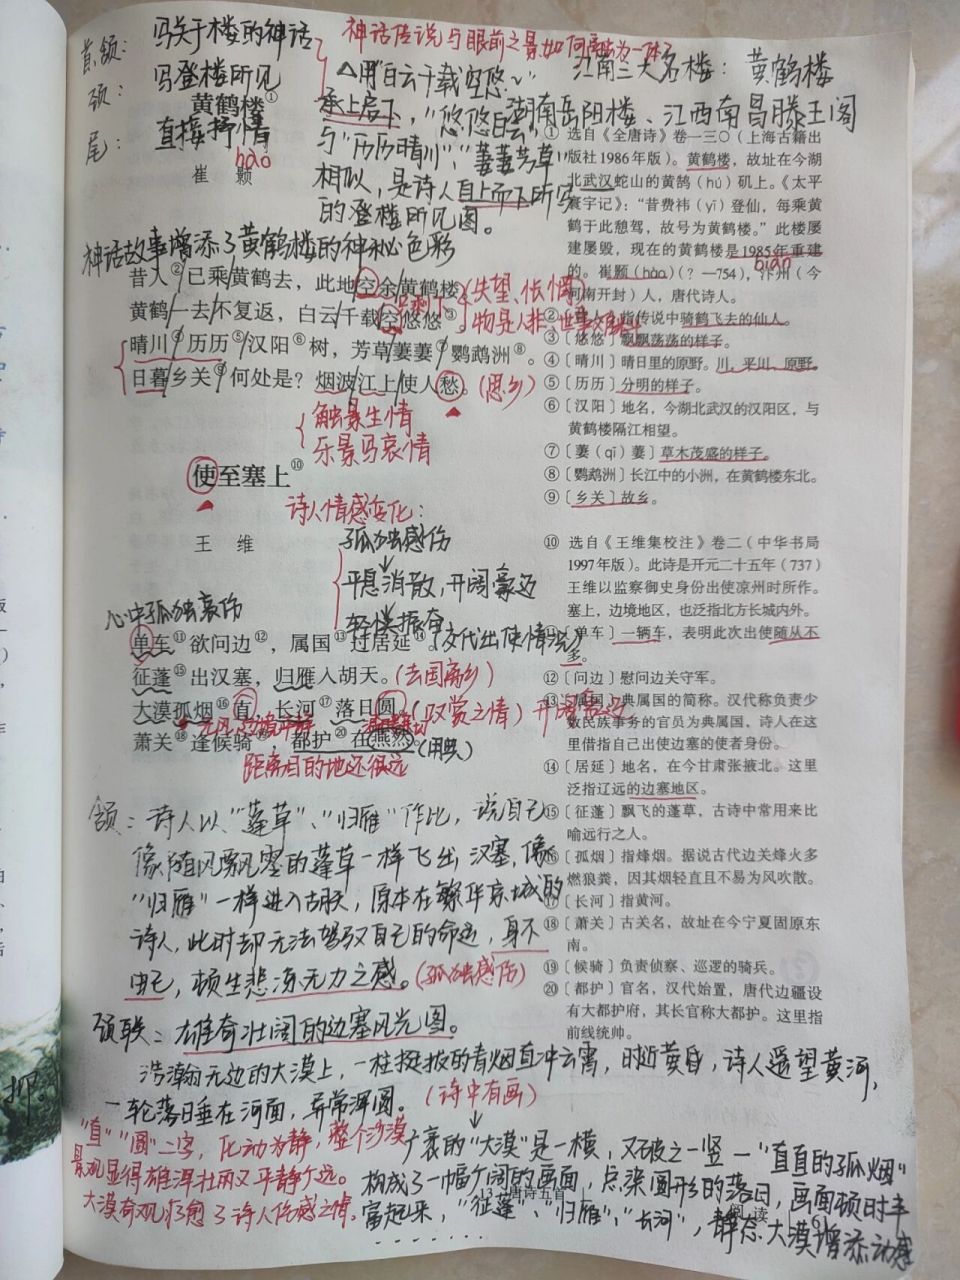 首颔：写关于楼的神话
颈：写登楼所见
尾：直接抒情
神话传说与眼前之景如何融为一体？
△用"白云千载空悠悠"
承上启下，"悠悠白云"
与"历历晴川"、"萋萋芳草"
相似，是诗人自上而下所写
的登楼所见图。
江南三大名楼：黄鹤楼
湖南岳阳楼、江西南昌滕王阁
黄鹤楼①
hào
崔 颢
神话故事增添了黄鹤楼的神秘色彩
昔人②已乘黄鹤去，此地空余黄鹤楼。
黄鹤一去不复返，白云千载空悠悠③。
晴川④历历⑤汉阳⑥树，芳草萋萋⑦鹦鹉洲⑧。
日暮乡关⑨何处是？烟波江上使人愁。
只剩下
(失望、怅惘)
物是人非、世事
(思乡)
触景生情
乐景写哀情
① 选自《全唐诗》卷一三〇（上海古籍出
版社1986年版）。黄鹤楼，故址在今湖
北武汉蛇山的黄鹄（hú）矶上。《太平
寰宇记》：“昔费祎（yī）登仙，每乘黄
鹤于此憩驾，故号为黄鹤楼。”此楼屡
建屡毁，现在的黄鹤楼是1985年重建
biàn
的。崔颢（hào）（？—754），汴州（今
河南开封）人，唐代诗人。
②〔昔人〕指传说中骑鹤飞去的仙人。
③〔悠悠〕飘飘荡荡的样子。
④〔晴川〕晴日里的原野。川，平川、原野。
⑤〔历历〕分明的样子。
⑥〔汉阳〕地名，今湖北武汉的汉阳区，与
黄鹤楼隔江相望。
⑦〔萋（qī）萋〕草木茂盛的样子。
⑧〔鹦鹉洲〕长江中的小洲，在黄鹤楼东北。
⑨〔乡关〕故乡。
使至塞上⑩
王 维
诗人情感变化：
孤独感伤
平息消散，开阔豪迈
心中孤独哀伤
单车⑪欲问边⑫，属国⑬过居延⑭。
(交代出使情况)
征蓬⑮出汉塞，归雁入胡天。(去国离乡)
大漠孤烟⑯直，长河⑰落日圆。
(叹赏之情)
萧关⑱逢候骑⑲，都护⑳在燕然。(用典)
距离目的地还很远
⑩ 选自《王维集校注》卷二（中华书局
1997年版）。此诗是开元二十五年（737）
王维以监察御史身份出使凉州时所作。
塞上，边境地区，也泛指北方长城内外。
⑪〔单车〕一辆车，表明此次出使随从不
多。
⑫〔问边〕慰问边关守军。
⑬〔属国〕典属国的简称。汉代称负责少
数民族事务的官员为典属国，诗人在这
里借指自己出使边塞的使者身份。
⑭〔居延〕地名，在今甘肃张掖北。这里
泛指辽远的边塞地区。
⑮〔征蓬〕飘飞的蓬草，古诗中常用来比
喻远行之人。
⑯〔孤烟〕指烽烟。据说古代边关烽火多
燃狼粪，因其烟轻直且不易为风吹散。
⑰〔长河〕指黄河。
⑱〔萧关〕古关名，故址在今宁夏固原东
南。
⑲〔候骑〕负责侦察、巡逻的骑兵。
⑳〔都护〕官名，汉代始置，唐代边疆设
有大都护府，其长官称大都护。这里指
前线统帅。
颔：诗人以"蓬草"、"归雁"作比，说自己
像随风飘飞的蓬草一样飞出汉塞，像
"归雁"一样进入胡天，原本在繁华京城的
诗人，此时却无法驾驭自己的命运，身不
由己，顿生悲凉无力之感。(孤独感伤)
颈联：雄奇壮阔的边塞风光图。
浩瀚无边的大漠上，一柱挺拔的青烟直冲云霄，时近黄昏，诗人遥望黄河，
一轮落日垂在河面，异常浑圆。(诗中有画)
"直""圆"二字，化动为静，整个沙漠
景观显得雄浑壮丽又平静宁远。
大漠奇观治愈了诗人低感之情。
广袤的"大漠"是一横，又破之一竖—"直直的孤烟"
构成了一幅广阔的画面，点染圆形的落日，画面顿时丰
富起来，"征蓬"、"归雁"、"长河"，静态大漠增添动感
13 唐诗五首
阅读